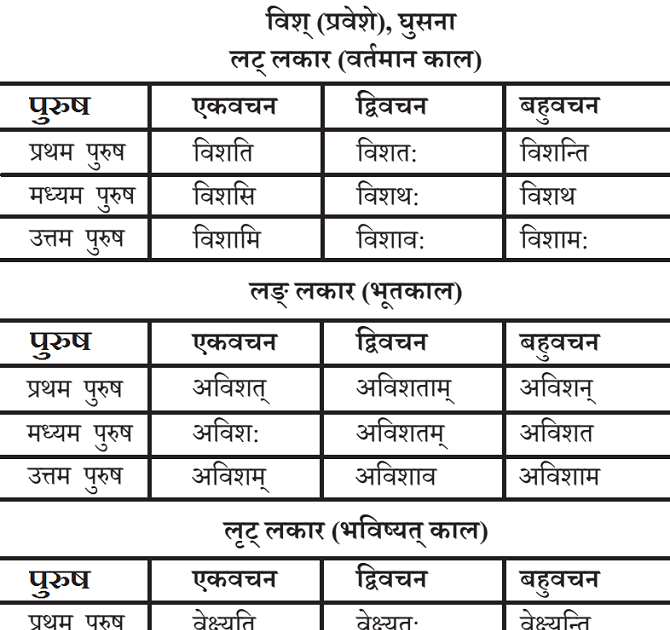 विश् (प्रवेशे), घुसना
लट् लकार (वर्तमान काल)
पुरुष एकवचन द्विवचन बहुवचन
प्रथम पुरुष विशति विशत: विशन्ति
मध्यम पुरुष विशसि विशथ: विशथ
उत्तम पुरुष विशामि विशाव: विशाम:
लङ् लकार (भूतकाल)
पुरुष एकवचन द्विवचन बहुवचन
प्रथम पुरुष अविशत् अविशताम् अविशन्
मध्यम पुरुष अविश: अविशतम् अविशत
उत्तम पुरुष अविशम् अविशाव अविशाम
लृट् लकार (भविष्यत् काल)
पुरुष एकवचन द्विवचन बहुवचन
प्रथम पुरुष वेक्ष्यति वेक्ष्यत: वेक्ष्यन्ति